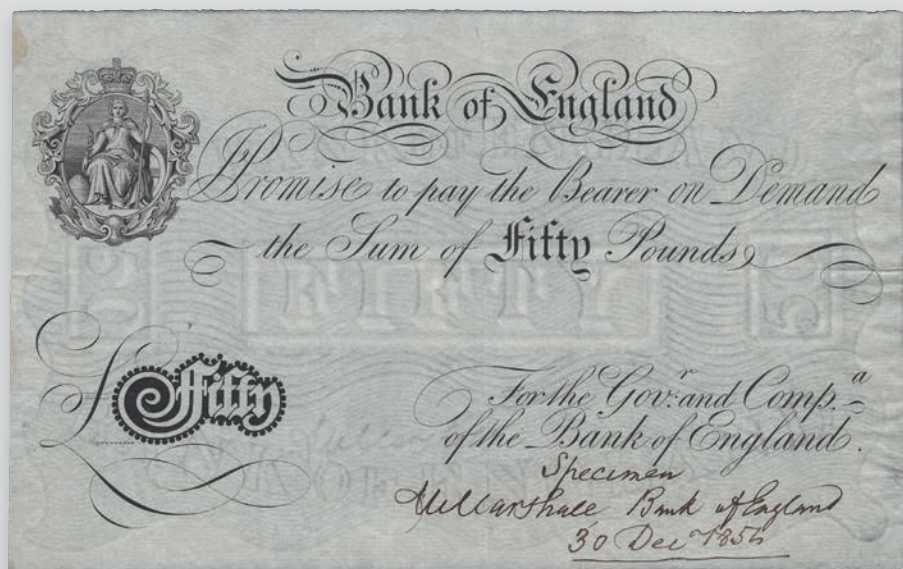 Bank of England
I Promise to pay the Bearer on Demand
the Sum of Fifty Pounds
FIFTY
£ Fifty
For the Gov.r and Comp.a
of the Bank of England.
Specimen
Marshall Bank of England
30 Dec